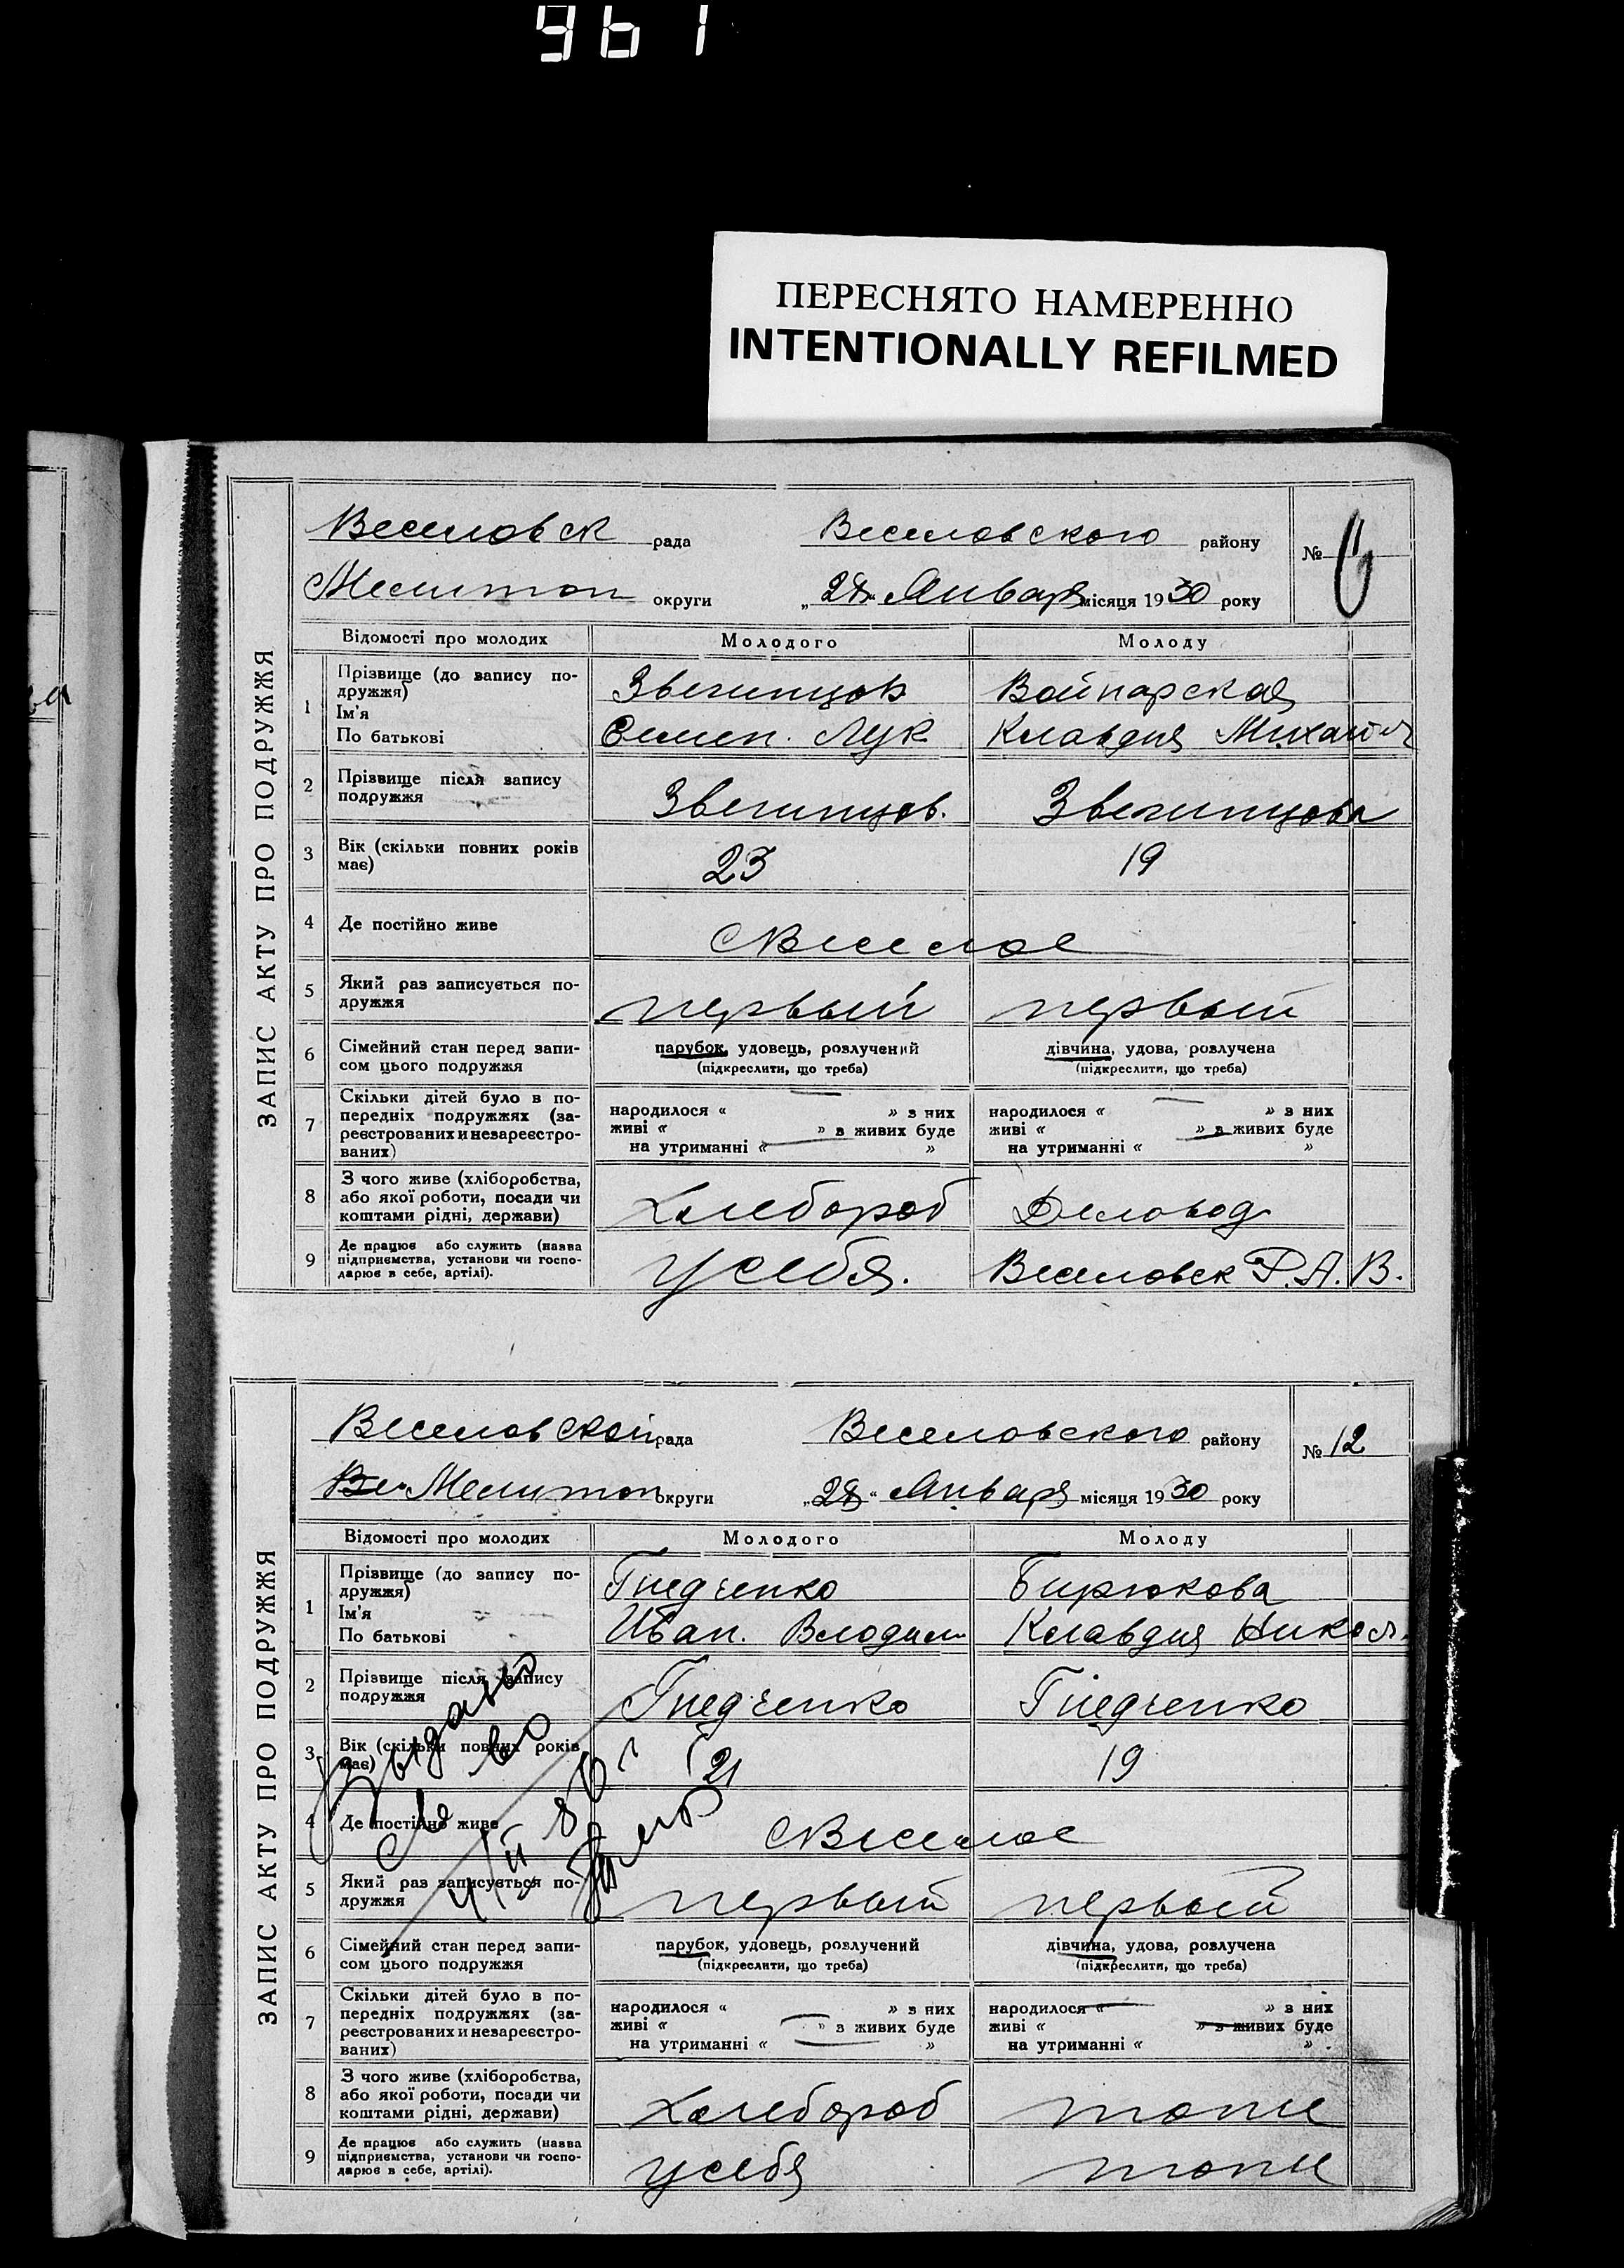 961
ПЕРЕСНЯТО НАМЕРЕННО
INTENTIONALLY REFILMED
ЗАПИС АКТУ ПРО ПОДРУЖЖЯ
Веселовск рада Веселовского району №
Мелитоп округи „28“ Января місяця 1930 року
Відомості про молодих Молодого Молоду
1 Прізвище (до запису по-
дружжя)
Ім'я
По батькові
Звегинцов Войнарская
Семен. Лук Клавдия Михайл
2 Прізвище після запису
подружжя
Звегинцов. Звегинцова
3 Вік (скільки повних років
має)
23 19
4 Де постійно живе
с Веселое
5 Який раз записується по-
дружжя
первый первый
6 Сімейний стан перед запи-
сом цього подружжя
парубок, удовець, розлучений дівчина, удова, розлучена
(підкреслити, що треба) (підкреслити, що треба)
7 Скільки дітей було в по-
передніх подружжях (за-
реєстрованих и незареєстро-
ваних)
народилося « » з них народилося « » з них
живі « » з живих буде живі « » з живих буде
на утриманні « » на утриманні « »
8 З чого живе (хліборобства,
або якої роботи, посади чи
коштами рідні, держави)
Хлебороб Деловод
9 Де працює або служить (назва
підприємства, установи чи госпо-
дарює в себе, артілі).
у себя. Веселовск Р.А.В.
ЗАПИС АКТУ ПРО ПОДРУЖЖЯ
Веселовской рада Веселовского району № 12
Ве Мелитоп округи „28“ Января місяця 1930 року
Відомості про молодих Молодого Молоду
1 Прізвище (до запису по-
дружжя)
Ім'я
По батькові
Гнедченко Бирюкова
Иван. Влодим Клавдия Никол.
2 Прізвище після запису
подружжя
Гнедченко Гнедченко
3 Вік (скільки повних років
має)
21 19
Выдано
св во
4 Де постійно живе
с Веселое
5 Який раз записується по-
дружжя
первый первый
6 Сімейний стан перед запи-
сом цього подружжя
парубок, удовець, розлучений дівчина, удова, розлучена
(підкреслити, що треба) (підкреслити, що треба)
7 Скільки дітей було в по-
передніх подружжях (за-
реєстрованих и незареєстро-
ваних)
народилося « » з них народилося « » з них
живі « » з живих буде живі « » з живих буде
на утриманні « » на утриманні « »
8 З чого живе (хліборобства,
або якої роботи, посади чи
коштами рідні, держави)
Хлебороб тоже
9 Де працює або служить (назва
підприємства, установи чи госпо-
дарює в себе, артілі).
у себя тоже